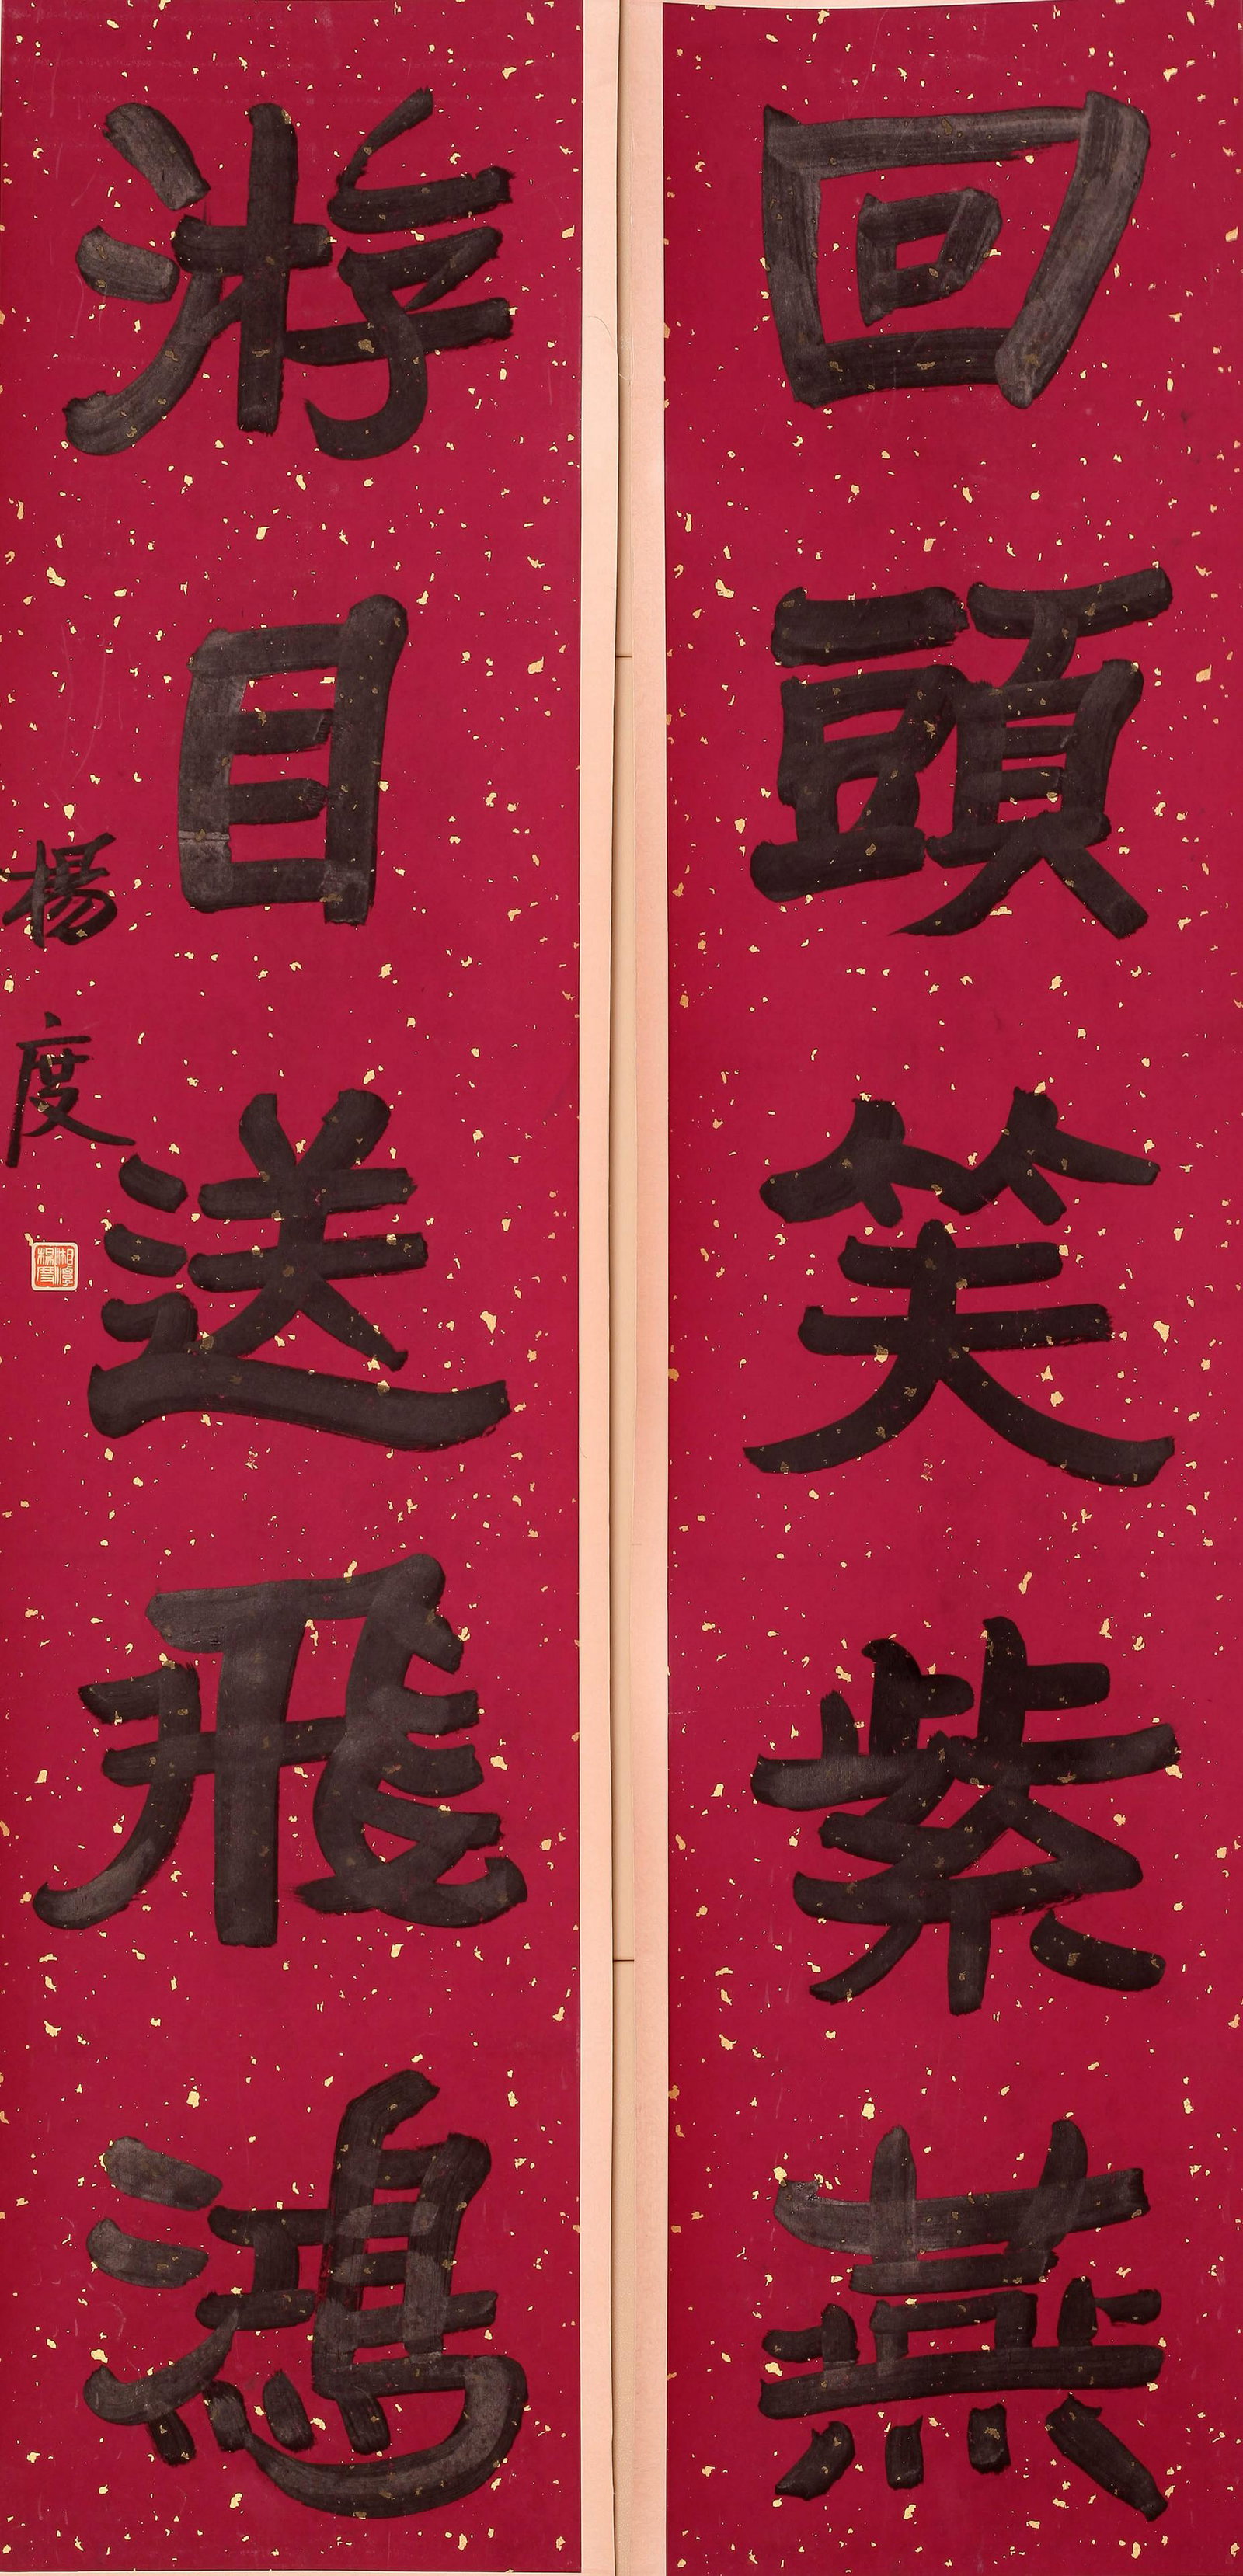 回頭笑紫燕
游目送飛鴻
楊度
湘潭楊度